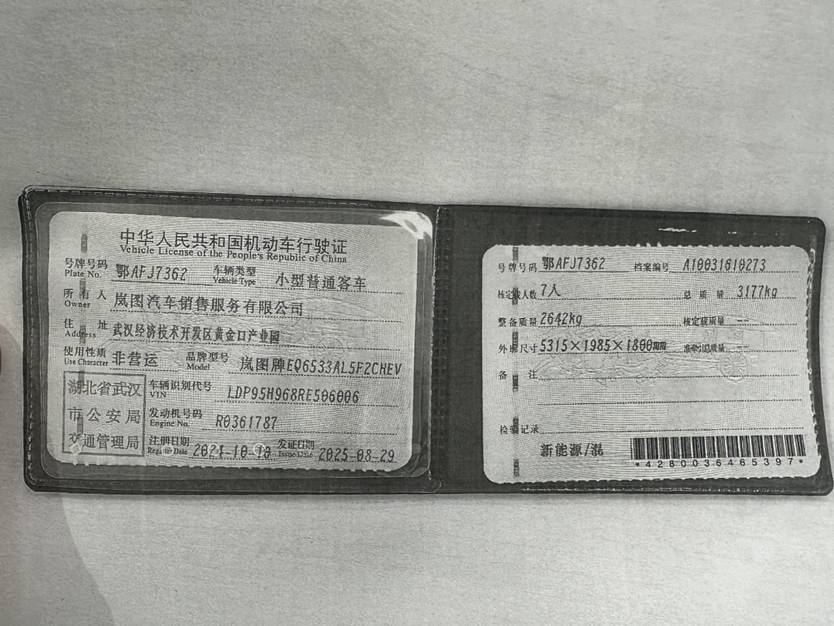 中华人民共和国机动车行驶证
Vehicle License of the People's Republic of China
号牌号码 Plate No. 鄂AFJ7362 车辆类型 Vehicle Type 小型普通客车
所有人 Owner 岚图汽车销售服务有限公司
住址 Address 武汉经济技术开发区黄金口产业园
使用性质 Use Character 非营运 品牌型号 Model 岚图牌EQ6533AL5F2CHEV
湖北省武汉市公安局交通管理局
车辆识别代号 VIN LDP95H968RE506006
发动机号码 Engine No. R0361787
注册日期 Register Date 2024-10-10 发证日期 Issue Date 2025-08-29
号牌号码 鄂AFJ7362 档案编号 A10031610273
核定载人数 7人 总质量 3177kg
整备质量 2642kg 核定载质量 --
外廓尺寸 5315×1985×1800mm 准牵引总质量 --
备注
检验记录
新能源/混
*4280036465397*